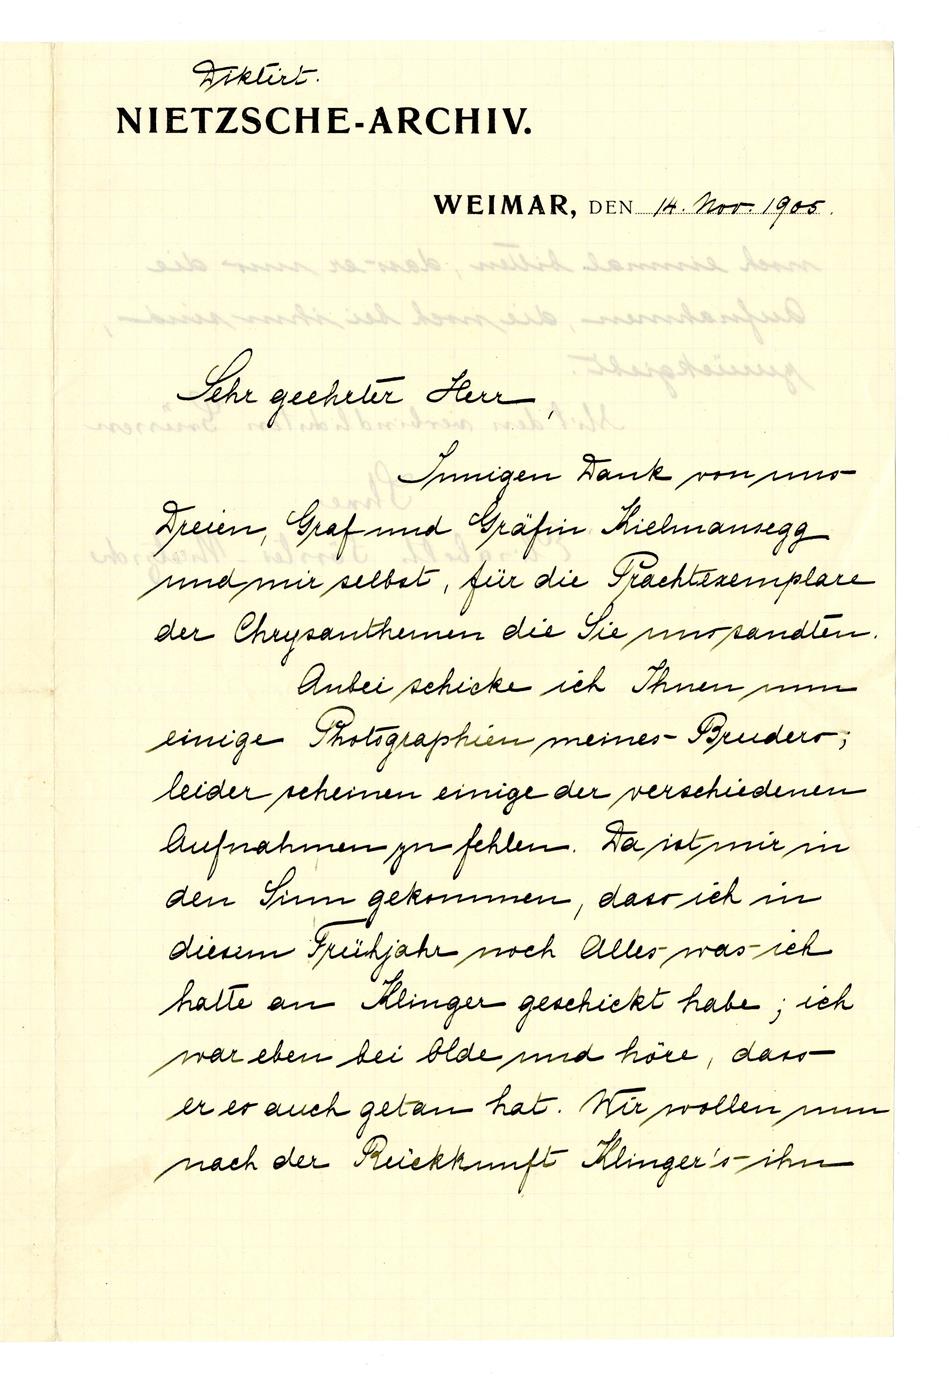 Diktirt.
NIETZSCHE-ARCHIV.
WEIMAR, DEN 14. Nov. 1905.
Sehr geehrter Herr,
Innigen Dank von uns
Dreien, Graf und Gräfin Kielmansegg
und mir selbst, für die Prachtexemplare
der Chrysanthemen die Sie uns sandten.
Anbei schicke ich Ihnen nun
einige Photographien meines Bruders;
leider scheinen einige der verschiedenen
Aufnahmen zu fehlen. Da ist mir in
den Sinn gekommen, dass ich in
diesem Frühjahr noch Alles was ich
hatte an Klinger geschickt habe; ich
war eben bei Olde und höre, dass
er es auch getan hat. Wir wollen nun
nach der Rückkunft Klinger's ihn